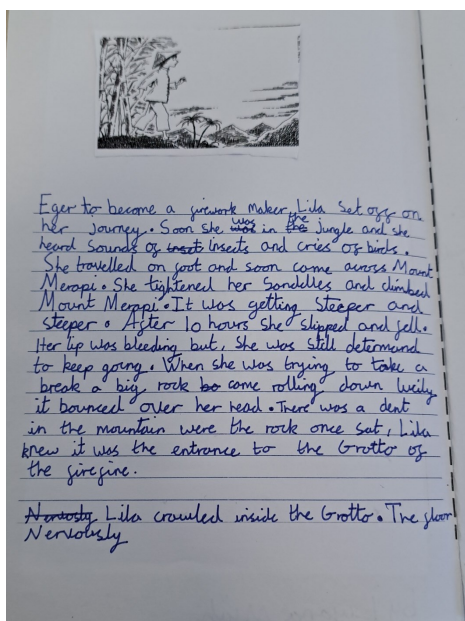 Eger to become a firework maker, Lila set off on
her journey. Soon she was in the jungle and she
heard sounds of insects and cries of birds.
She travelled on foot and soon came across Mount
Merapi. She tightened her Sandelles and climbed
Mount Merapi. It was getting steeper and
steeper. After 10 hours she slipped and fell.
Her lip was bleeding but, she was still determand
to keep going. When she was trying to take a
break a big rock came rolling down luckily
it bounced over her head. There was a dent
in the mountain were the rock once sat, Lila
knew it was the entrance to the Grotto of
the firefine.
Nervosty Lila crawled inside the Grotto. The floor
Nervously